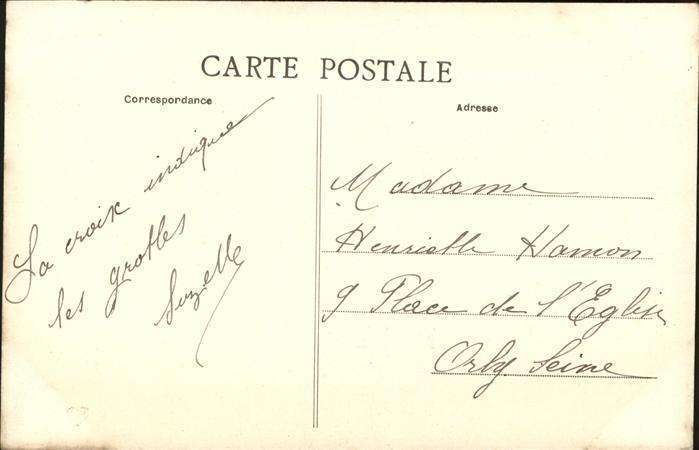 CARTE POSTALE
Correspondance
La croix indique
les grottes
Suzette
Adresse
Madame
Henriette Hamon
9 Place de l'Eglise
Orly Seine